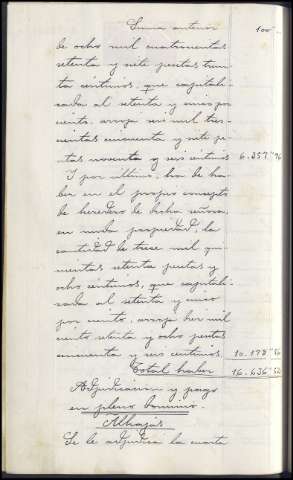 Suma anterior 100"-
de ocho mil cuatrocientas
setenta y siete pesetas trein
ta céntimos, que capitali-
zada al setenta y cinco por
ciento, arroja seis mil tres-
cientas cincuenta y siete pe-
setas noventa y seis céntimos 6.357"96
Y por último, ha de ha-
ber en el propio concepto
de heredero de dicha señora,
en nuda propiedad, la
cantidad de trece mil qui-
nientas setenta pesetas y
ocho céntimos, que capitali-
zada al setenta y cinco
por ciento, arroja diez mil
ciento setenta y ocho pesetas
cincuenta y seis céntimos. 10.178"56
Total haber 16.636"52
Adjudicación y pago
en pleno dominio.
Alhajas
Se le adjudica la cuarta